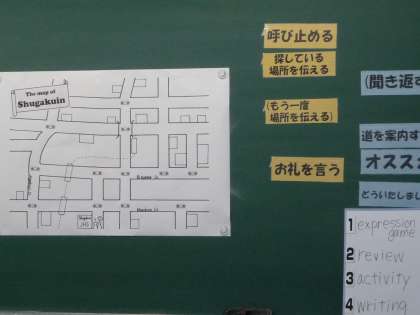 The map of
Shugakuin
呼び止める
探している
場所を伝える
(もう一度
場所を伝える)
お礼を言う
(聞き返す
道を案内す
オススメ
どういたしまし
1 expression
game
2 review
3 activity
4 writing